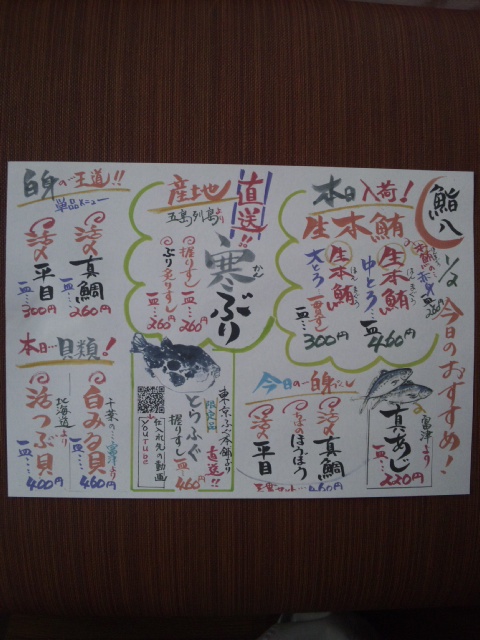 鮨八
今日のおすすめ!
本日入荷!
生本鮪
生本鮪
中とろ
一皿…460円
生本鮪
大とろ
一貫すし
一皿…300円
産地直送!!
五島列島より
寒ぶり
かん
握りすし
一皿…260円
ぶり炙りすし
一皿…260円
白身の王道!!
単品メニュー
活〆真鯛
一皿…260円
活〆平目
一皿…300円
富津より
真あじ
一皿…220円
今日の白身
活〆真鯛
ほうぼう
活〆平目
東京ふぐ本舗より
直送!!
限定品
とらふぐ
握りすし
一皿460円
仕入れ先の動画
YouTube
本日の貝類!
白みる貝
一皿…460円
北海道より
活つぶ貝
一皿…400円